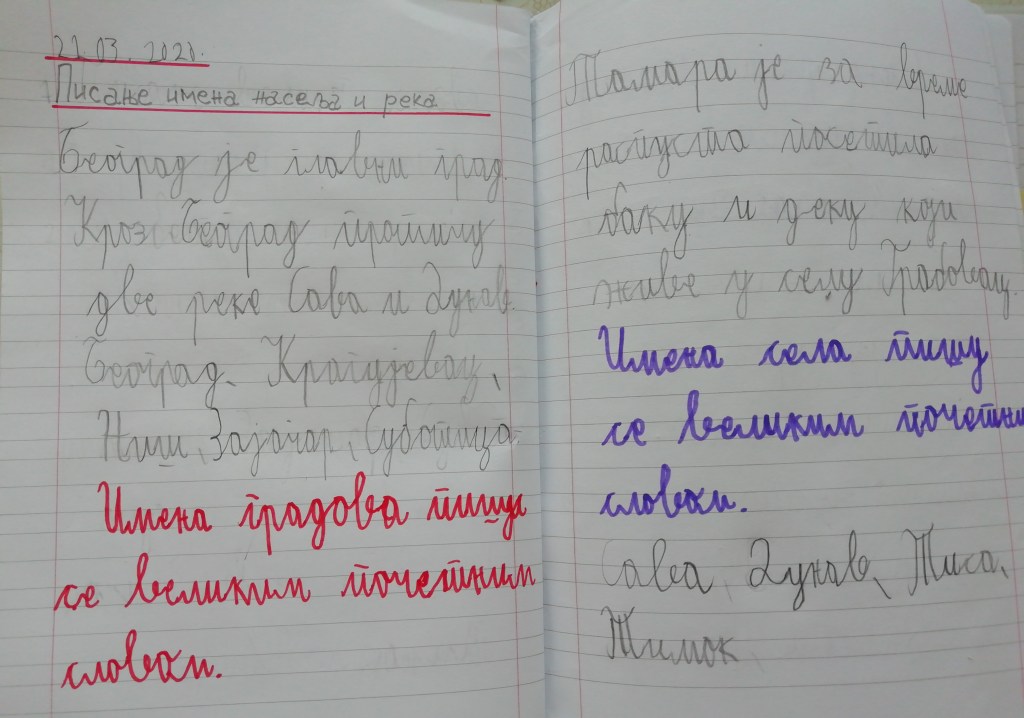 21.03.2020.
Писање имена насеља и река
Београд је главни град.
Кроз Београд протичу
две реке Сава и Дунав.
Београд, Крагујевац,
Ниш, Зајечар, Суботица.
Имена градова пишу
се великим почетним
словом.
Тамара је за време
распуста посетила
баку и деку који
живе у селу Грабовац.
Имена села пишу
се великим почетним
словом.
Сава, Дунав, Тиса,
Тимок